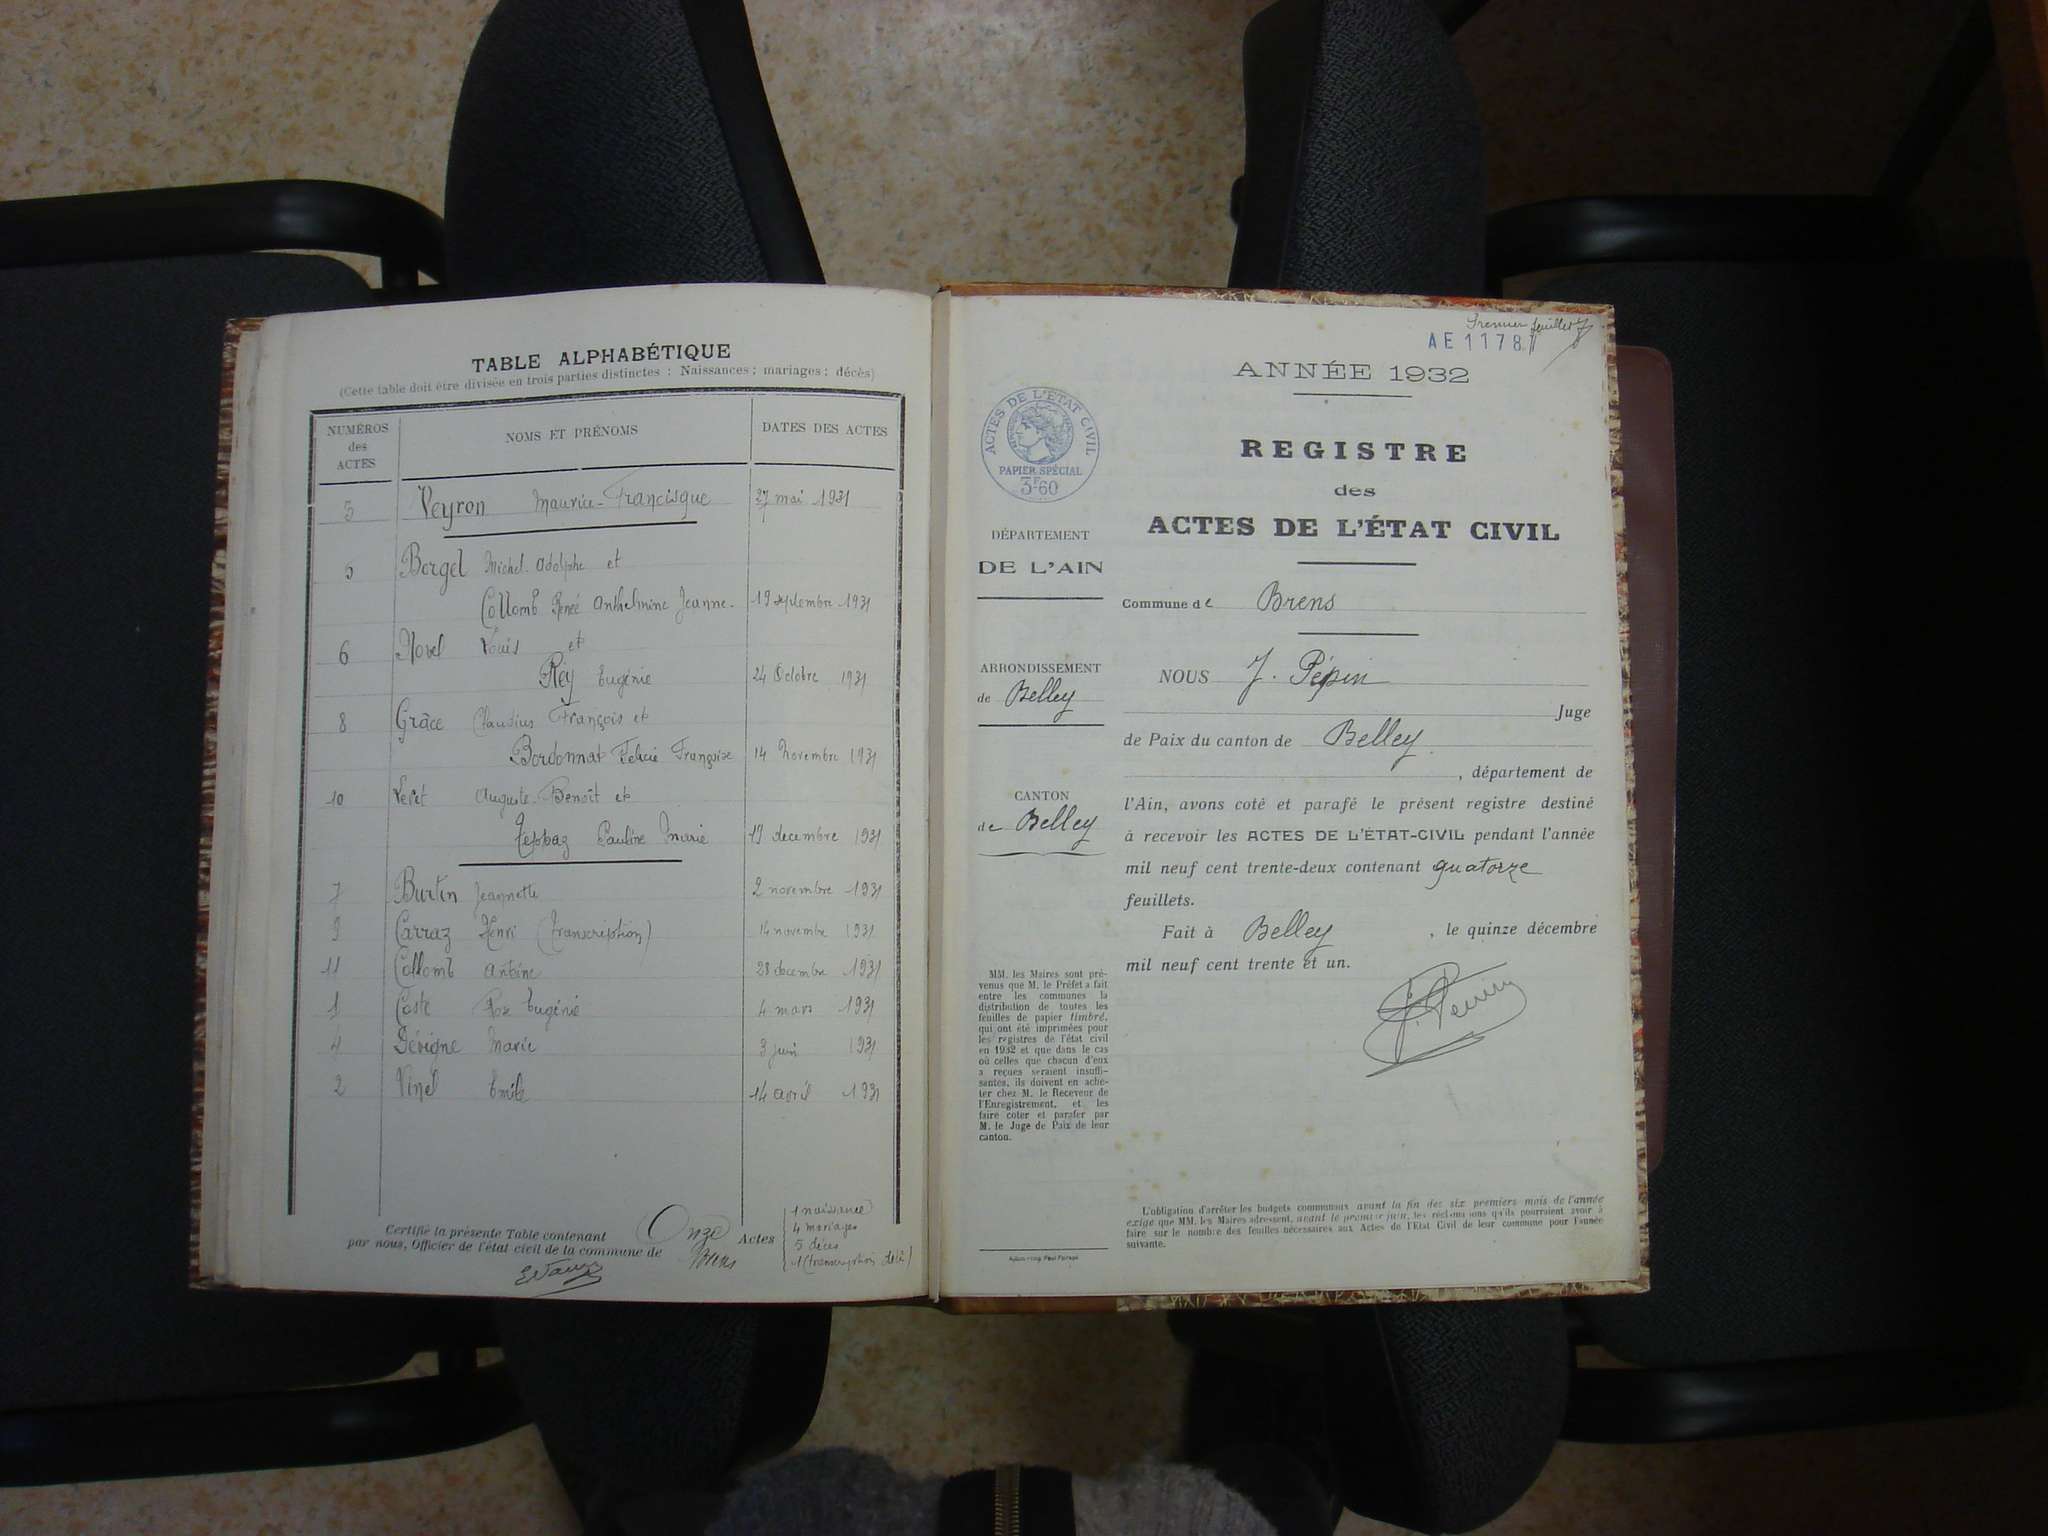 TABLE ALPHABÉTIQUE
(Cette table doit être divisée en trois parties distinctes : Naissances ; mariages ; décès)
NUMÉROS des ACTES NOMS ET PRÉNOMS DATES DES ACTES
3 Veyron Maurice-Francisque 27 mai 1931
5 Borgel Michel Adolphe et
Collomb Renée Anthelmine Jeanne. 19 septembre 1931
6 Novel Louis et
Rey Eugénie 24 Octobre 1931
8 Grâce Claudius François et
Bordonnat Felicie Françoise 14 Novembre 1931
10 Veret Auguste-Benoît et
Teppaz Pauline Marie 19 decembre 1931
7 Burtin Jeannette 2 novembre 1931
9 Carraz Henri (transcription) 14 novembre 1931
11 Collomb Antoine 28 decembre 1931
1 Coste Eugénie 4 mars 1931
4 Dérigne Marie 3 juin 1931
2 Vinel Emile 14 avril 1931
Certifié la présente Table contenant Onze Actes
par nous, Officier de l'état civil de la commune de Brens
1 naissance
4 mariages
5 décès
1 (transcription décès)
Premier feuillet
AE 1178
ANNÉE 1932
ACTES DE L'ÉTAT CIVIL
PAPIER SPÉCIAL
3F60
REGISTRE
des
ACTES DE L'ÉTAT CIVIL
DÉPARTEMENT
DE L'AIN
Commune de Brens
ARRONDISSEMENT
de Belley
NOUS J. Pépin
Juge
de Paix du canton de Belley
, département de
CANTON
de Belley
l'Ain, avons coté et parafé le présent registre destiné
à recevoir les ACTES DE L'ÉTAT-CIVIL pendant l'année
mil neuf cent trente-deux contenant quatorze
feuillets.
Fait à Belley , le quinze décembre
mil neuf cent trente et un.
MM. les Maires sont pré-
venus que M. le Préfet a fait
entre les communes la
distribution de toutes les
feuilles de papier timbré,
qui ont été imprimées pour
les registres de l'état civil
en 1932 et que dans le cas
où celles que chacun d'eux
a reçues seraient insuffi-
santes, ils doivent en ache-
ter chez M. le Receveur de
l'Enregistrement, et les
faire coter et parafer par
M. le Juge de Paix de leur
canton.
L'obligation d'arrêter les budgets communaux avant la fin des six premiers mois de l'année
exige que MM. les Maires adressent, avant le premier juin, les réclamations qu'ils pourraient avoir à
faire sur le nombre des feuilles nécessaires aux Actes de l'Etat Civil de leur commune pour l'année
suivante.